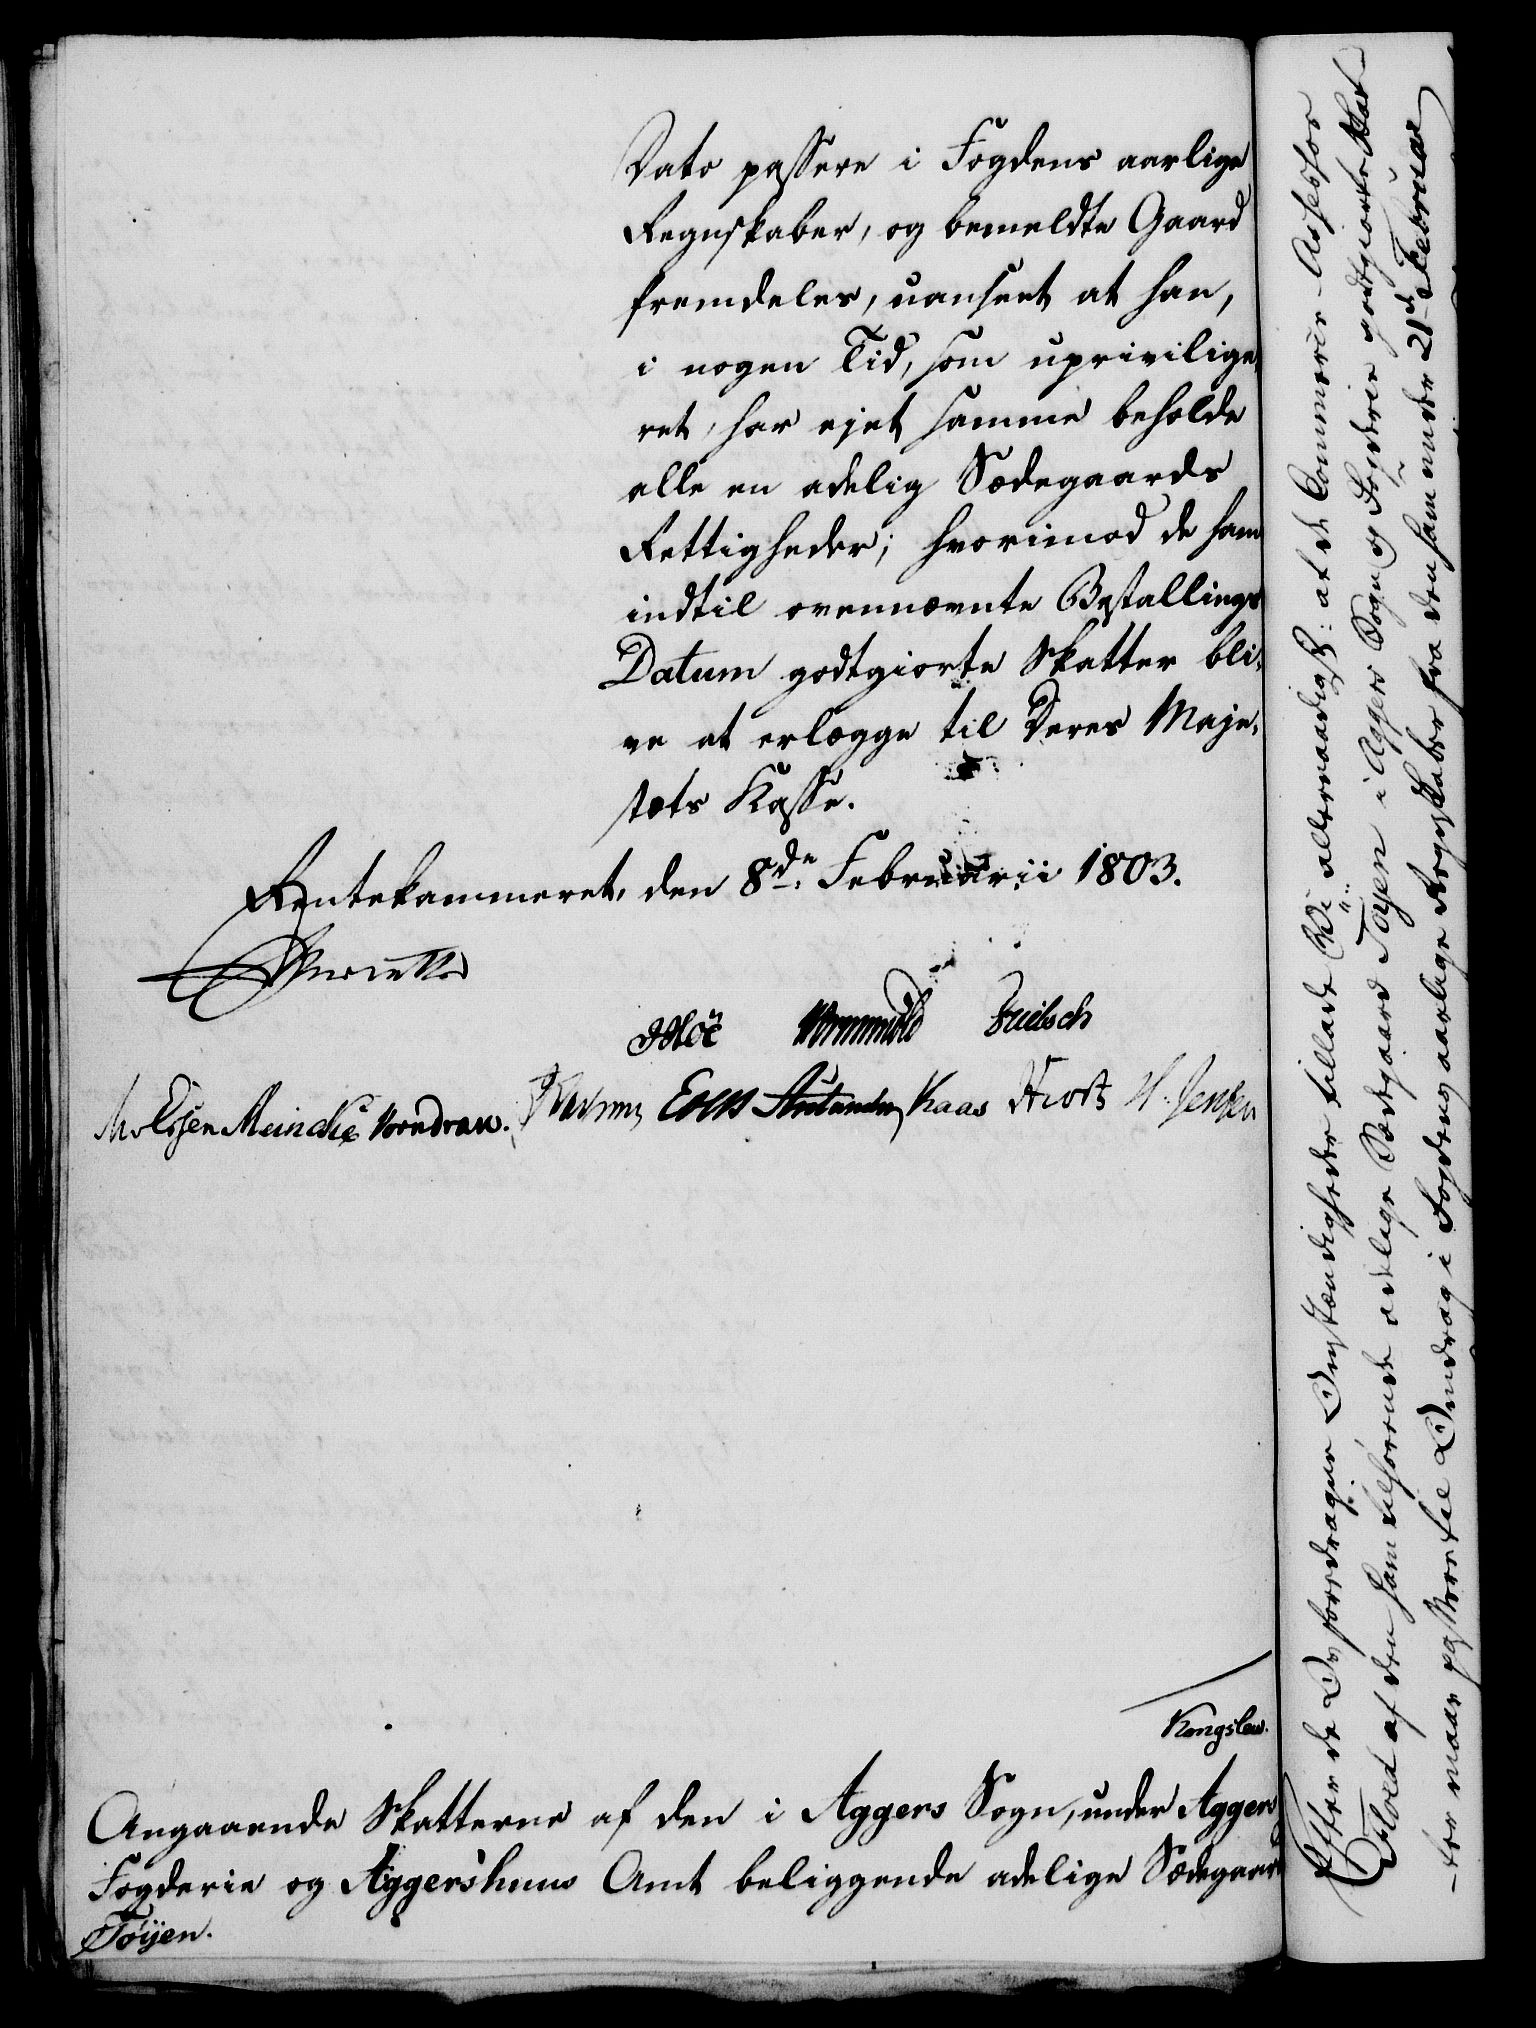 Dato passere i Fogdens aarlige
Regnskaber, og bemeldte Gaard
fremdeles, uanseet at han,
i nogen Tid, som uprivilige,
ret, har ejet samme beholde
alle en adelig Sædegaards
Rettigheder; hvorimod de ham
indtil ovennævnte Bestallings
Datum godtgiorte Skatter bli,
ve at erlægge til Deres Maje,
stæts Kasse.
Rentekammeret, den 8de Februarii 1803.
Wormskiold
Meincke Vorndran. Kaas Hiort H. Jensen
Kongslew.
Angaaende Skatterne af den i Aggers Sogn, under Aggers
Fogderie og Aggershuus Amt beliggende adelige Sædegaard
Töyen.
Efter de foredragne Omstændigheder tillade Vi allernaadigst: at de Commerce-Assessor
af den ham tilhørende adelige Sædegaard Töyen i Aggers Sogn og Fogderie godtgiorte Skat-
-ter maae passere til Omdrag i Fogdens aarlige Regnskaber fra den ham under 21de Februar